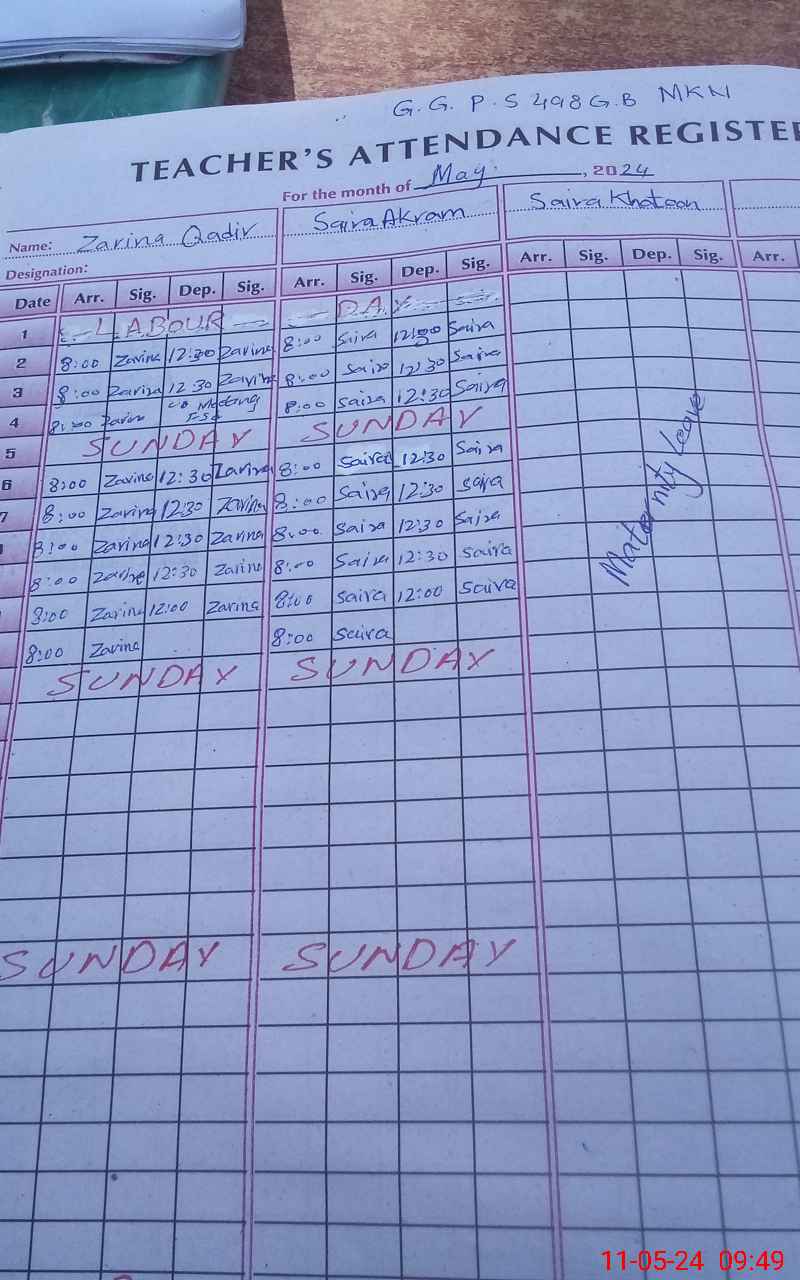 G.G.P.S 498 G.B MKN
TEACHER'S ATTENDANCE REGISTE
For the month of May, 2024
Name: Zarina Qadir Saira Akram Saira Khatoon
Designation:
Date Arr. Sig. Dep. Sig. Arr. Sig. Dep. Sig. Arr. Sig. Dep. Sig. Arr.
1 LABOUR DAY
2 8:00 Zarina 12:30 Zarina 8:00 Saira 12:30 Saira
3 8:00 Zarina 12:30 Zarina 8:00 Saira 12:30 Saira
4 8:00 Zarina Meeting 8:00 Saira 12:30 Saira
5 SUNDAY SUNDAY
6 8:00 Zarina 12:30 Zarina 8:00 Saira 12:30 Saira
7 8:00 Zarina 12:30 Zarina 8:00 Saira 12:30 Saira
8:00 Zarina 12:30 Zarina 8:00 Saira 12:30 Saira
8:00 Zarina 12:30 Zarina 8:00 Saira 12:30 Saira
8:00 Zarina 12:00 Zarina 8:00 Saira 12:00 Saira
8:00 Zarina 8:00 Saira
SUNDAY SUNDAY
Maternity Leave
SUNDAY SUNDAY
11-05-24 09:49